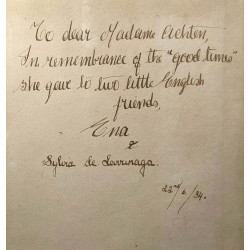 To dear Madame Achton,
In remembrance of the "good times"
she gave to two little English
friends,
Ena
&
Sylvia de Larrinaga.
22nd/6/34.